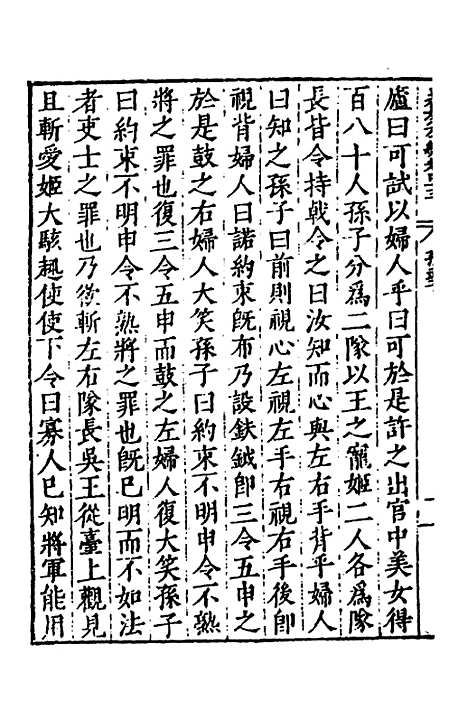 廬曰可試以婦人乎曰可於是許之出宮中美女得
百八十人孫子分爲二隊以王之寵姬二人各爲隊
長皆令持戟令之曰汝知而心與左右手背乎婦人
曰知之孫子曰前則視心左視左手右視右手後卽
視背婦人曰諾約束旣布乃設鈇鉞卽三令五申之
於是鼓之右婦人大笑孫子曰約束不明申令不熟
將之罪也復三令五申而鼓之左婦人復大笑孫子
曰約束不明申令不熟將之罪也旣已明而不如法
者吏士之罪也乃欲斬左右隊長吳王從臺上觀見
且斬愛姬大駭趨使使下令曰寡人已知將軍能用